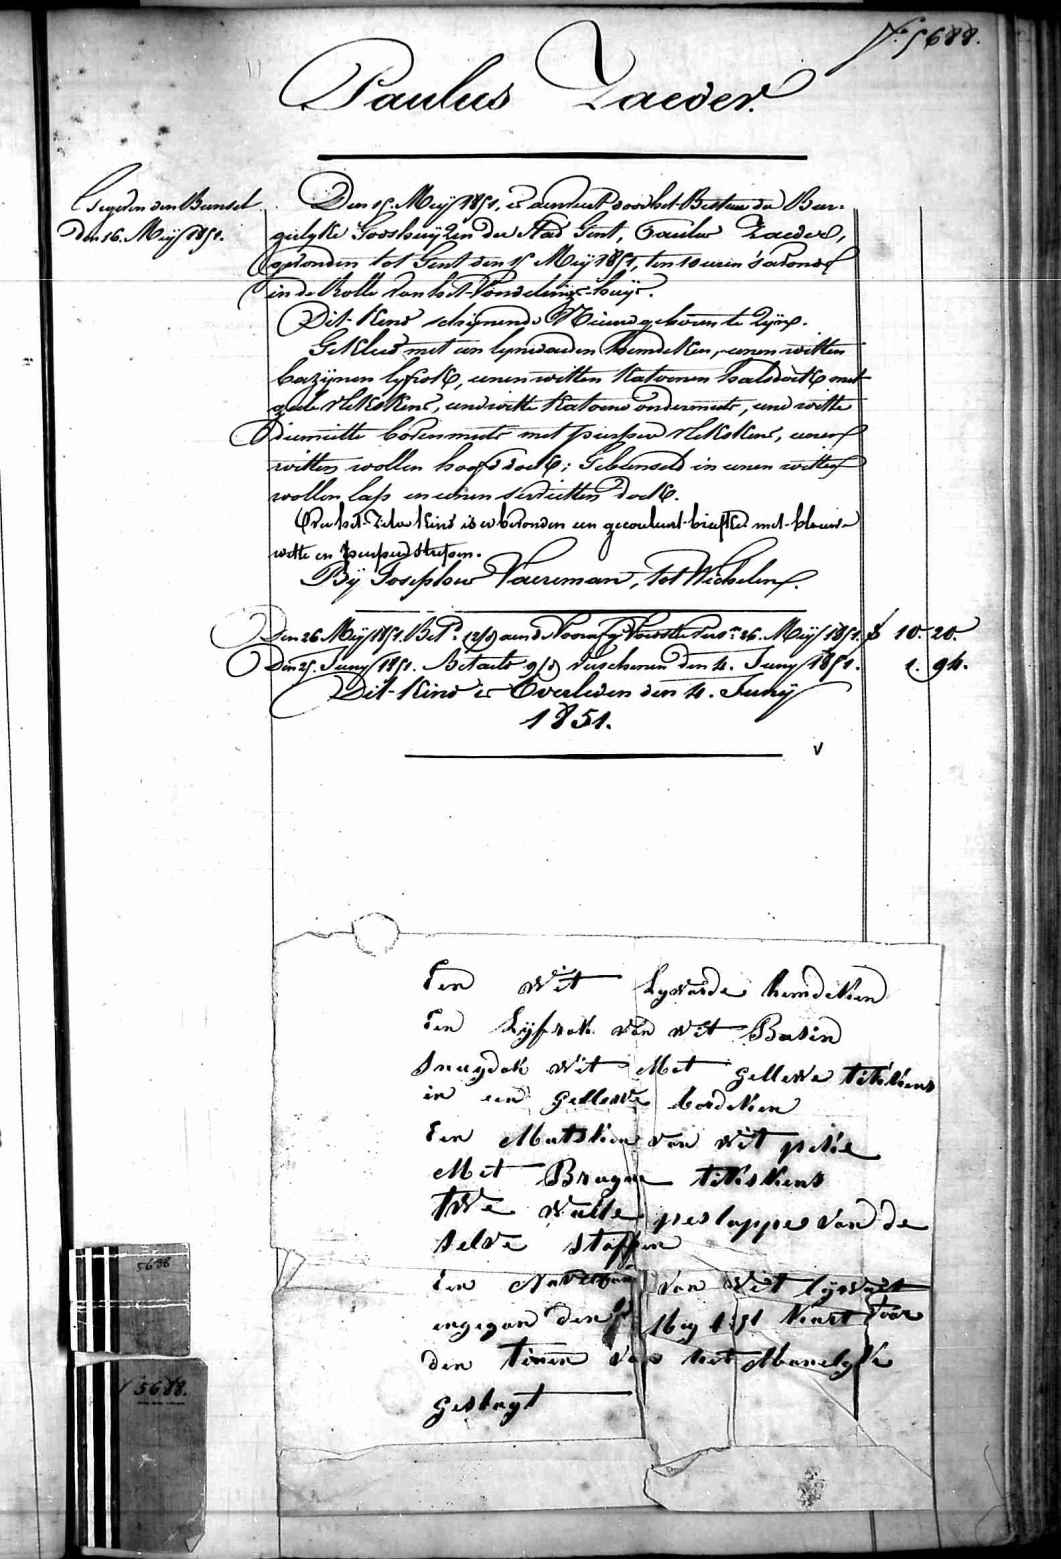 Nº. 5688.
Paulus Zaeder.
Gegeven den Bunsel
den 16. Meij 1851.
Den 15. Meij 1851, is aenveert door het Bestuur der Bur-
gerlyke Godshuyzen der Stad Gent, Paulus Zaeder,
gevonden tot Gent den 15 Meij 1851, ten 10 uren 's avonds
in de Rolle van het Vondelingshuys.
Dit Kind schynende Nieuwgeboren te zyn.
Gekleed met een lynwaeden hemdeken, eenen witten
bazynen lyfrok, eenen witten katoenen halsdoek met
geele vlekskens, eene witte katoene ondermuts, eene witte
bovenmuts met purpere vlekskens, eenen
witten wollen hoofddoek; Gebunseld in eenen witten
wollen lap en eenen servietten doek.
Over het zelve Kind is er bevonden een gecouleurd briefke met blauwe
witte en purpere strepen.
By Josephus Vaereman, tot Wichelen.
Den 26 Meij 1851. Bet. aen de Voorsz. 26. Meij 1851. 10. 20.
Den 25. Juny 1851. Betaelt verschenen den 4. Juny 1851. 1. 94.
Dit Kind is Overleden den 4. Junij
1851.
V
Een wit Lywaede hemdeken
Een Lyfrok van wit Basin
snuydok wit Met gellewe titskens
in een gellewe bordeken
Een Mutsken van wit pekie
Met Bruyne titskens
twe wolle peslappe van de
selve stoffen
Een van wit lywaet
ingegaen den Mey 1851 Neart voor
den tienen van het Manelyke
geslagt
5688
N 5688.